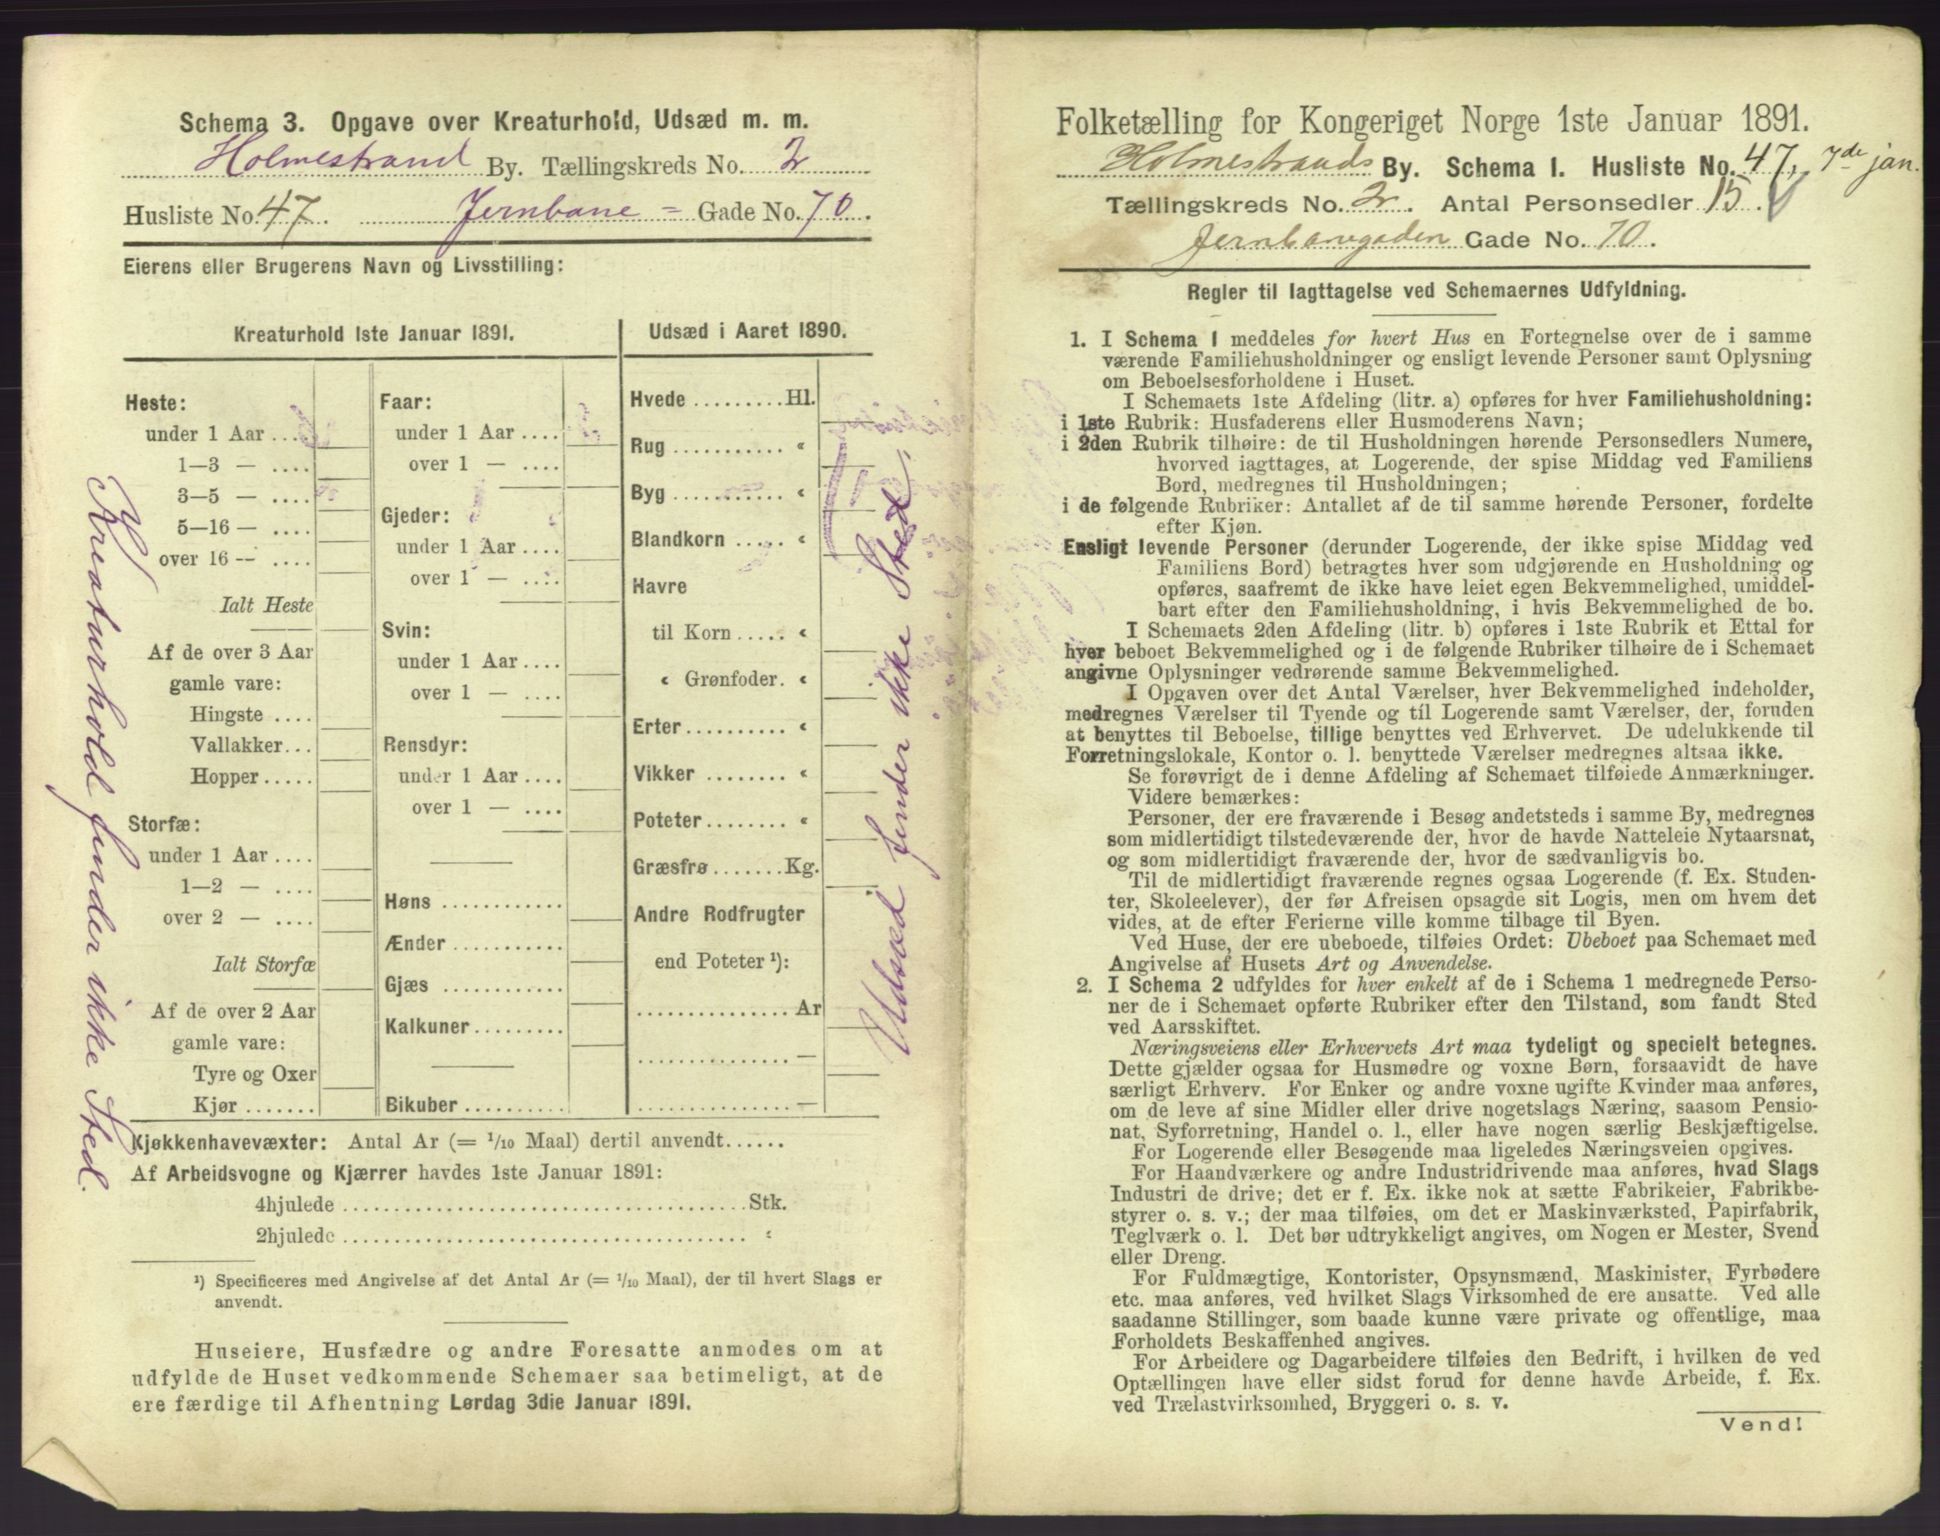 Schema 3. Opgave over Kreaturhold, Udsæd m. m.
Holmestrand By. Tællingskreds No. 2
Husliste No. 47. Jernbane = Gade No. 70.
Eierens eller Brugerens Navn og Livsstilling:
Kreaturhold 1ste Januar 1891.
Heste:
under 1 Aar ....
1—3 — ....
3—5 — ....
5—16 — ....
over 16 — ....
Ialt Heste
Af de over 3 Aar
gamle vare:
Hingste ....
Vallakker...
Hopper.....
Storfæ:
under 1 Aar ....
1—2 — ....
over 2 — ....
Ialt Storfæ
Af de over 2 Aar
gamle vare:
Tyre og Oxer
Kjør.......
Faar:
under 1 Aar ....
over 1 — ....
Gjeder:
under 1 Aar ....
over 1 — ....
Svin:
under 1 Aar ....
over 1 — ....
Rensdyr:
under 1 Aar ....
over 1 — ....
Høns ............
Ænder ...........
Gjæs ............
Kalkuner.........
Bikuber ..........
Udsæd i Aaret 1890.
Hvede .........Hl.
Rug ........... «
Byg ........... «
Blandkorn ..... «
Havre
til Korn ..... «
« Grønfoder. «
Erter.......... «
Vikker ........ «
Poteter........ «
Græsfrø .......Kg.
Andre Rodfrugter
end Poteter ¹):
...............Ar
...............—
...............—
Kreaturhold finder ikke Sted.
Udsæd finder ikke Sted.
Kjøkkenhavevæxter: Antal Ar (= 1/10 Maal) dertil anvendt......
Af Arbeidsvogne og Kjærrer havdes 1ste Januar 1891:
4hjulede ....................................Stk.
2hjulede .................................... «
¹) Specificeres med Angivelse af det Antal Ar (= 1/10 Maal), der til hvert Slags er
anvendt.
Huseiere, Husfædre og andre Foresatte anmodes om at
udfylde de Huset vedkommende Schemaer saa betimeligt, at de
ere færdige til Afhentning Lørdag 3die Januar 1891.
Folketælling for Kongeriget Norge 1ste Januar 1891.
Holmestrands By. Schema 1. Husliste No. 47, 7de jan.
Tællingskreds No. 2. Antal Personsedler 15.
Jernbanegaden Gade No. 70.
Regler til Iagttagelse ved Schemaernes Udfyldning.
1. I Schema 1 meddeles for hvert Hus en Fortegnelse over de i samme
værende Familiehusholdninger og ensligt levende Personer samt Oplysning
om Beboelsesforholdene i Huset.
I Schemaets 1ste Afdeling (litr. a) opføres for hver Familiehusholdning:
i 1ste Rubrik: Husfaderens eller Husmoderens Navn;
i 2den Rubrik tilhøire: de til Husholdningen hørende Personsedlers Numere,
hvorved iagttages, at Logerende, der spise Middag ved Familiens
Bord, medregnes til Husholdningen;
i de følgende Rubriker: Antallet af de til samme hørende Personer, fordelte
efter Kjøn.
Ensligt levende Personer (derunder Logerende, der ikke spise Middag ved
Familiens Bord) betragtes hver som udgjørende en Husholdning og
opføres, saafremt de ikke have leiet egen Bekvemmelighed, umiddel-
bart efter den Familiehusholdning, i hvis Bekvemmelighed de bo.
I Schemaets 2den Afdeling (litr. b) opføres i 1ste Rubrik et Ettal for
hver beboet Bekvemmelighed og i de følgende Rubriker tilhøire de i Schemaet
angivne Oplysninger vedrørende samme Bekvemmelighed.
I Opgaven over det Antal Værelser, hver Bekvemmelighed indeholder,
medregnes Værelser til Tyende og til Logerende samt Værelser, der, foruden
at benyttes til Beboelse, tillige benyttes ved Erhvervet. De udelukkende til
Forretningslokale, Kontor o. l. benyttede Værelser medregnes altsaa ikke.
Se forøvrigt de i denne Afdeling af Schemaet tilføiede Anmærkninger.
Videre bemærkes:
Personer, der ere fraværende i Besøg andetsteds i samme By, medregnes
som midlertidigt tilstedeværende der, hvor de havde Natteleie Nytaarsnat,
og som midlertidigt fraværende der, hvor de sædvanligvis bo.
Til de midlertidigt fraværende regnes ogsaa Logerende (f. Ex. Studen-
ter, Skoleelever), der før Afreisen opsagde sit Logis, men om hvem det
vides, at de efter Ferierne ville komme tilbage til Byen.
Ved Huse, der ere ubeboede, tilføies Ordet: Ubeboet paa Schemaet med
Angivelse af Husets Art og Anvendelse.
2. I Schema 2 udfyldes for hver enkelt af de i Schema 1 medregnede Perso-
ner de i Schemaet opførte Rubriker efter den Tilstand, som fandt Sted
ved Aarsskiftet.
Næringsveiens eller Erhvervets Art maa tydeligt og specielt betegnes.
Dette gjælder ogsaa for Husmødre og voxne Børn, forsaavidt de have
særligt Erhverv. For Enker og andre voxne ugifte Kvinder maa anføres,
om de leve af sine Midler eller drive nogetslags Næring, saasom Pensio-
nat, Syforretning, Handel o. l., eller have nogen særlig Beskjæftigelse.
For Logerende eller Besøgende maa ligeledes Næringsveien opgives.
For Haandværkere og andre Industridrivende maa anføres, hvad Slags
Industri de drive; det er f. Ex. ikke nok at sætte Fabrikeier, Fabrikbe-
styrer o. s. v.; der maa tilføies, om det er Maskinværksted, Papirfabrik,
Teglværk o. l. Det bør udtrykkeligt angives, om Nogen er Mester, Svend
eller Dreng.
For Fuldmægtige, Kontorister, Opsynsmænd, Maskinister, Fyrbødere
etc. maa anføres, ved hvilket Slags Virksomhed de ere ansatte. Ved alle
saadanne Stillinger, som baade kunne være private og offentlige, maa
Forholdets Beskaffenhed angives.
For Arbeidere og Dagarbeidere tilføies den Bedrift, i hvilken de ved
Optællingen have eller sidst forud for denne havde Arbeide, f. Ex.
ved Trælastvirksomhed, Bryggeri o. s. v.
Vend!